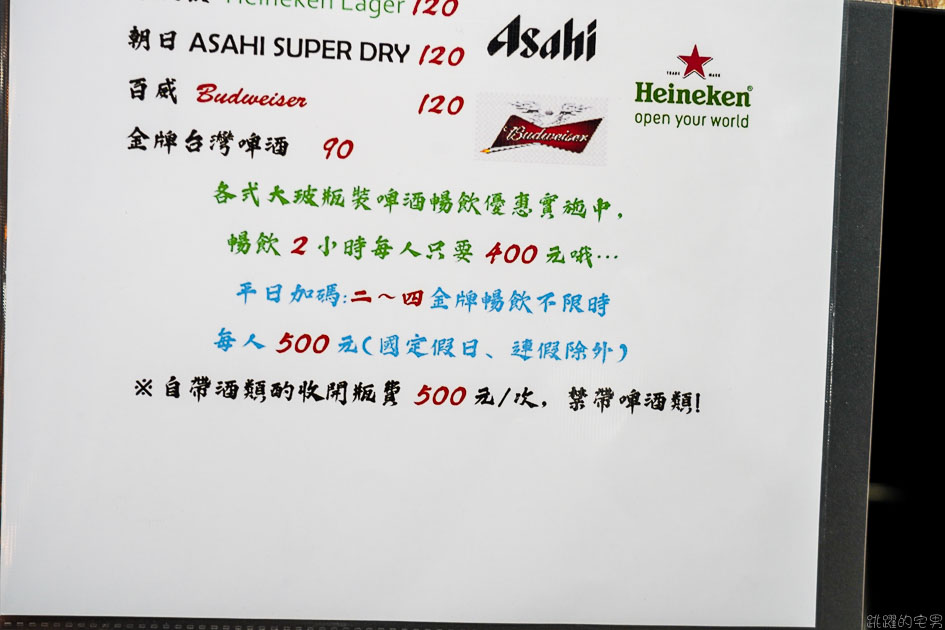 Heineken Lager 120
朝日 ASAHI SUPER DRY 120
Asahi
百威 Budweiser 120
Budweiser
TRADE MARK
Heineken®
open your world
金牌台灣啤酒 90
各式大玻瓶裝啤酒暢飲優惠實施中,
暢飲 2 小時每人只要 400 元哦…
平日加碼:二~四金牌暢飲不限時
每人 500 元(國定假日、連假除外)
※自帶酒類酌收開瓶費 500 元/次, 禁帶啤酒類!
跳躍的宅男